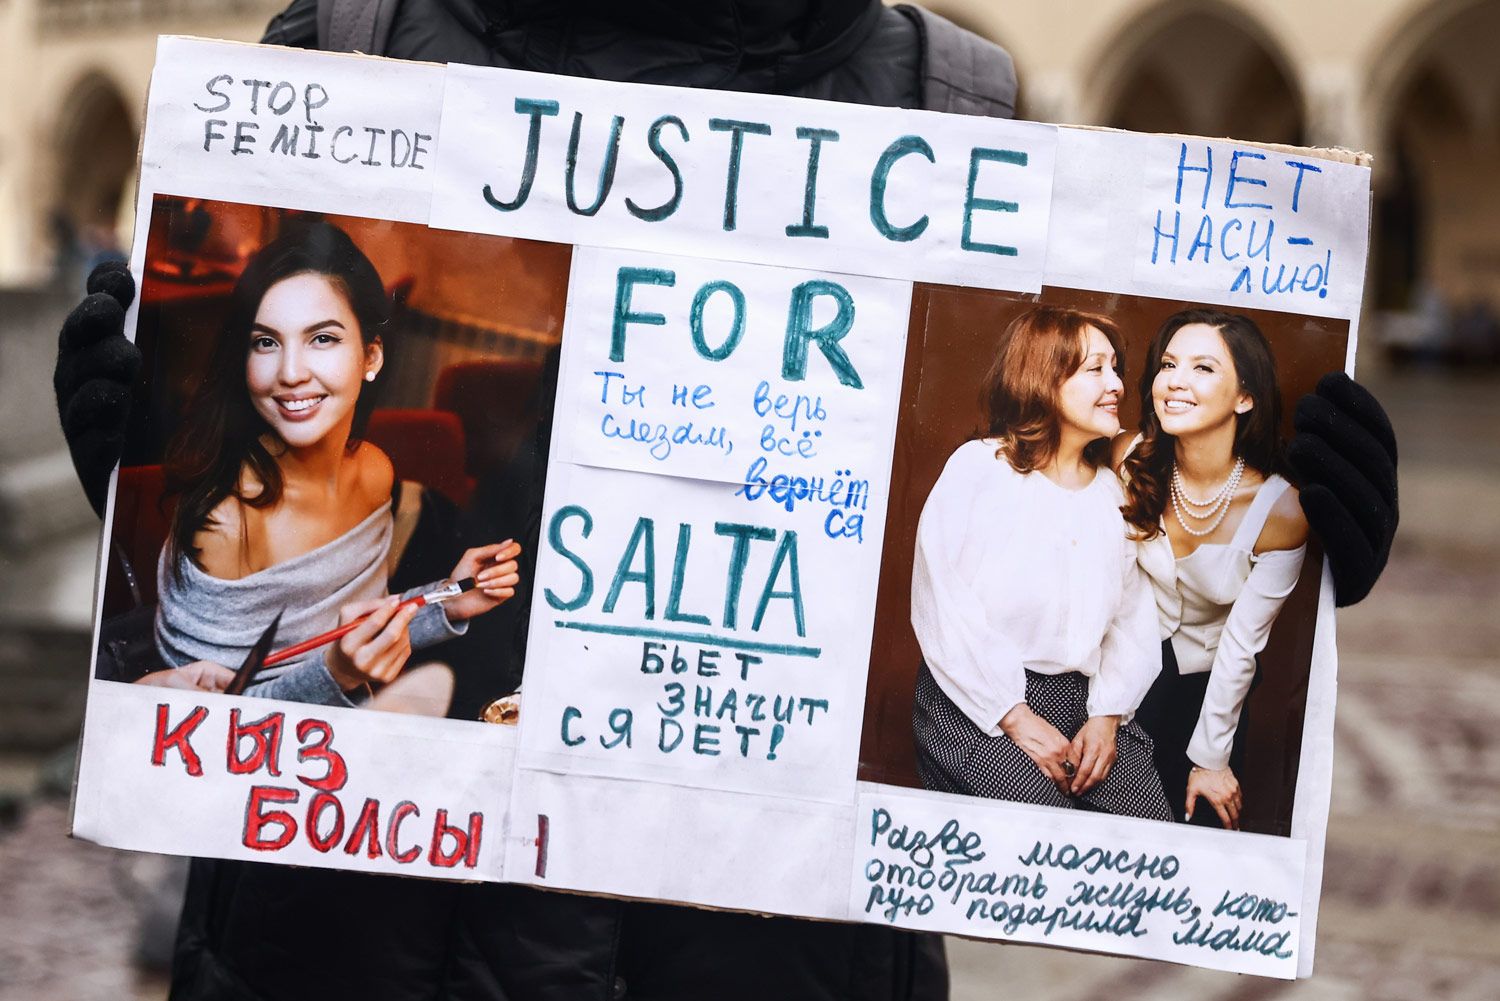 STOP
FEMICIDE
JUSTICE
НЕТ
НАСИ-
ЛИЮ!
FOR
Ты не верь
слезам, всё
вернёт
ся
SALTA
БЬЕТ
ЗНАЧИТ
СЯДЕТ!
КЫЗ
БОЛСЫ!
Разве можно
отобрать жизнь, кото-
рую подарила мама